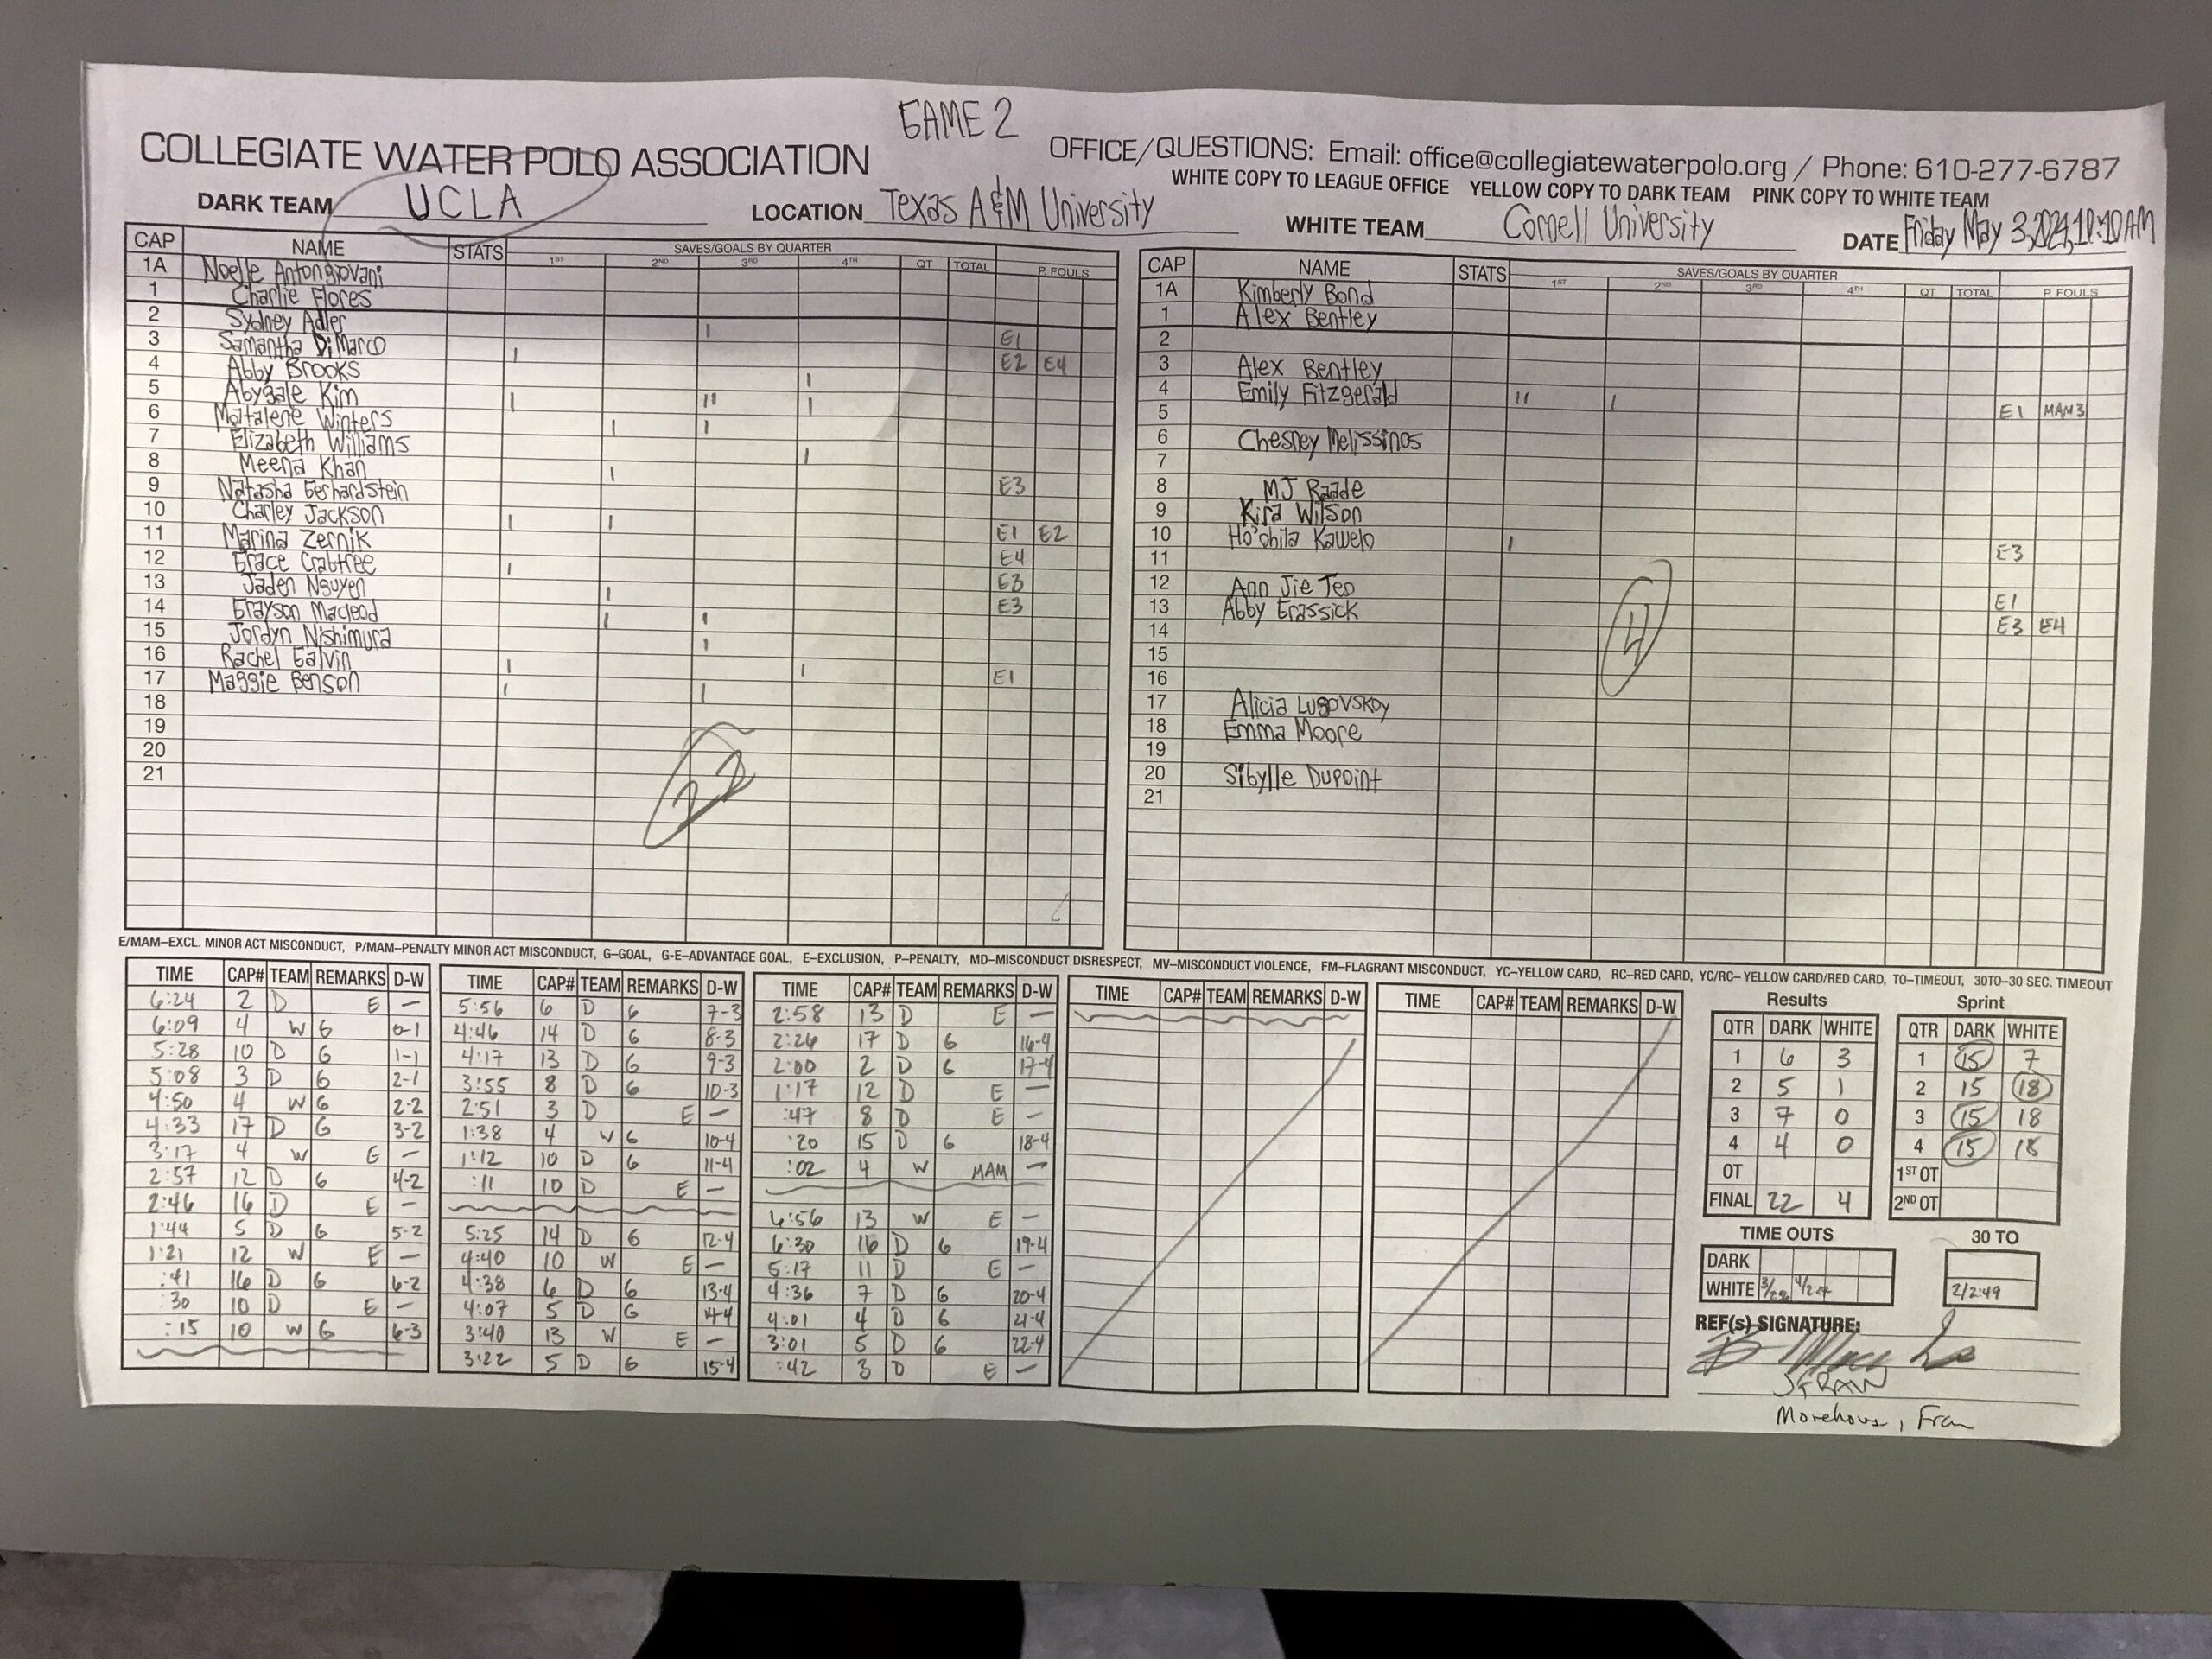 GAME 2
COLLEGIATE WATER POLO ASSOCIATION
OFFICE/QUESTIONS: Email: office@collegiatewaterpolo.org / Phone: 610-277-6787
WHITE COPY TO LEAGUE OFFICE YELLOW COPY TO DARK TEAM PINK COPY TO WHITE TEAM
DARK TEAM UCLA LOCATION Texas A&M University WHITE TEAM Cornell University DATE Friday May 3, 2024,
CAP NAME STATS SAVES/GOALS BY QUARTER
1ST 2ND 3RD 4TH QT TOTAL P. FOULS
1A Noelle Antongiovani
1 Charlie Flores
2 Sydney Adler I E1
3 Samantha DiMarco I E2 E4
4 Abby Brooks I
5 Abygale Kim I II I
6 Matalene Winters I I
7 Elizabeth Williams I
8 Meena Khan I E3
9 Natasha Gerhardstein
10 Charley Jackson I I E1 E2
11 Marina Zernik E4
12 Grace Crabtree I E3
13 Jaden Nguyen I E3
14 Grayson Macleod I I
15 Jordyn Nishimura I
16 Rachel Galvin I I E1
17 Maggie Benson I I
18
19
20
21
22
CAP NAME STATS SAVES/GOALS BY QUARTER
1ST 2ND 3RD 4TH QT TOTAL P. FOULS
1A Kimberly Bond
1 Alex Bentley
2
3 Alex Bentley
4 Emily Fitzgerald II I E1 MAM3
5
6 Chesney Melissinos
7
8 MJ Raade
9 Kira Wilson
10 Ho'ohila Kawelo I E3
11
12 Ann Jie Teo E1
13 Abby Grassick E3 E4
14
15
16
17 Alicia Lugovskoy
18 Emma Moore
19
20 Sibylle Dupoint
21
4
E/MAM–EXCL. MINOR ACT MISCONDUCT, P/MAM–PENALTY MINOR ACT MISCONDUCT, G–GOAL, G-E–ADVANTAGE GOAL, E–EXCLUSION, P–PENALTY, MD–MISCONDUCT DISRESPECT, MV–MISCONDUCT VIOLENCE, FM–FLAGRANT MISCONDUCT, YC–YELLOW CARD, RC–RED CARD, YC/RC– YELLOW CARD/RED CARD, TO–TIMEOUT, 30TO–30 SEC. TIMEOUT
TIME CAP# TEAM REMARKS D-W
6:24 2 D E —
6:09 4 W G 0-1
5:28 10 D G 1-1
5:08 3 D G 2-1
4:50 4 W G 2-2
4:33 17 D G 3-2
3:17 4 W E —
2:57 12 D G 4-2
2:46 16 D E —
1:44 5 D G 5-2
1:21 12 W E —
:41 16 D G 6-2
:30 10 D E —
:15 10 W G 6-3
TIME CAP# TEAM REMARKS D-W
5:56 6 D G 7-3
4:46 14 D G 8-3
4:17 13 D G 9-3
3:55 8 D G 10-3
2:51 3 D E —
1:38 4 W G 10-4
1:12 10 D G 11-4
:11 10 D E —
5:25 14 D G 12-4
4:40 10 W E —
4:38 6 D G 13-4
4:07 5 D G 14-4
3:40 13 W E —
3:22 5 D G 15-4
TIME CAP# TEAM REMARKS D-W
2:58 13 D E —
2:26 17 D G 16-4
2:00 2 D G 17-4
1:17 12 D E —
:47 8 D E —
:20 15 D G 18-4
:02 4 W MAM —
6:56 13 W E —
6:30 16 D G 19-4
5:17 11 D E —
4:36 7 D G 20-4
4:01 4 D G 21-4
3:01 5 D G 22-4
:42 3 D E —
TIME CAP# TEAM REMARKS D-W
TIME CAP# TEAM REMARKS D-W
Results
QTR DARK WHITE
1 6 3
2 5 1
3 7 0
4 4 0
OT
FINAL 22 4
Sprint
QTR DARK WHITE
1 15 7
2 15 18
3 15 18
4 15 18
1ST OT
2ND OT
TIME OUTS
DARK
WHITE
30 TO
2/2:49
REF(s) SIGNATURE: